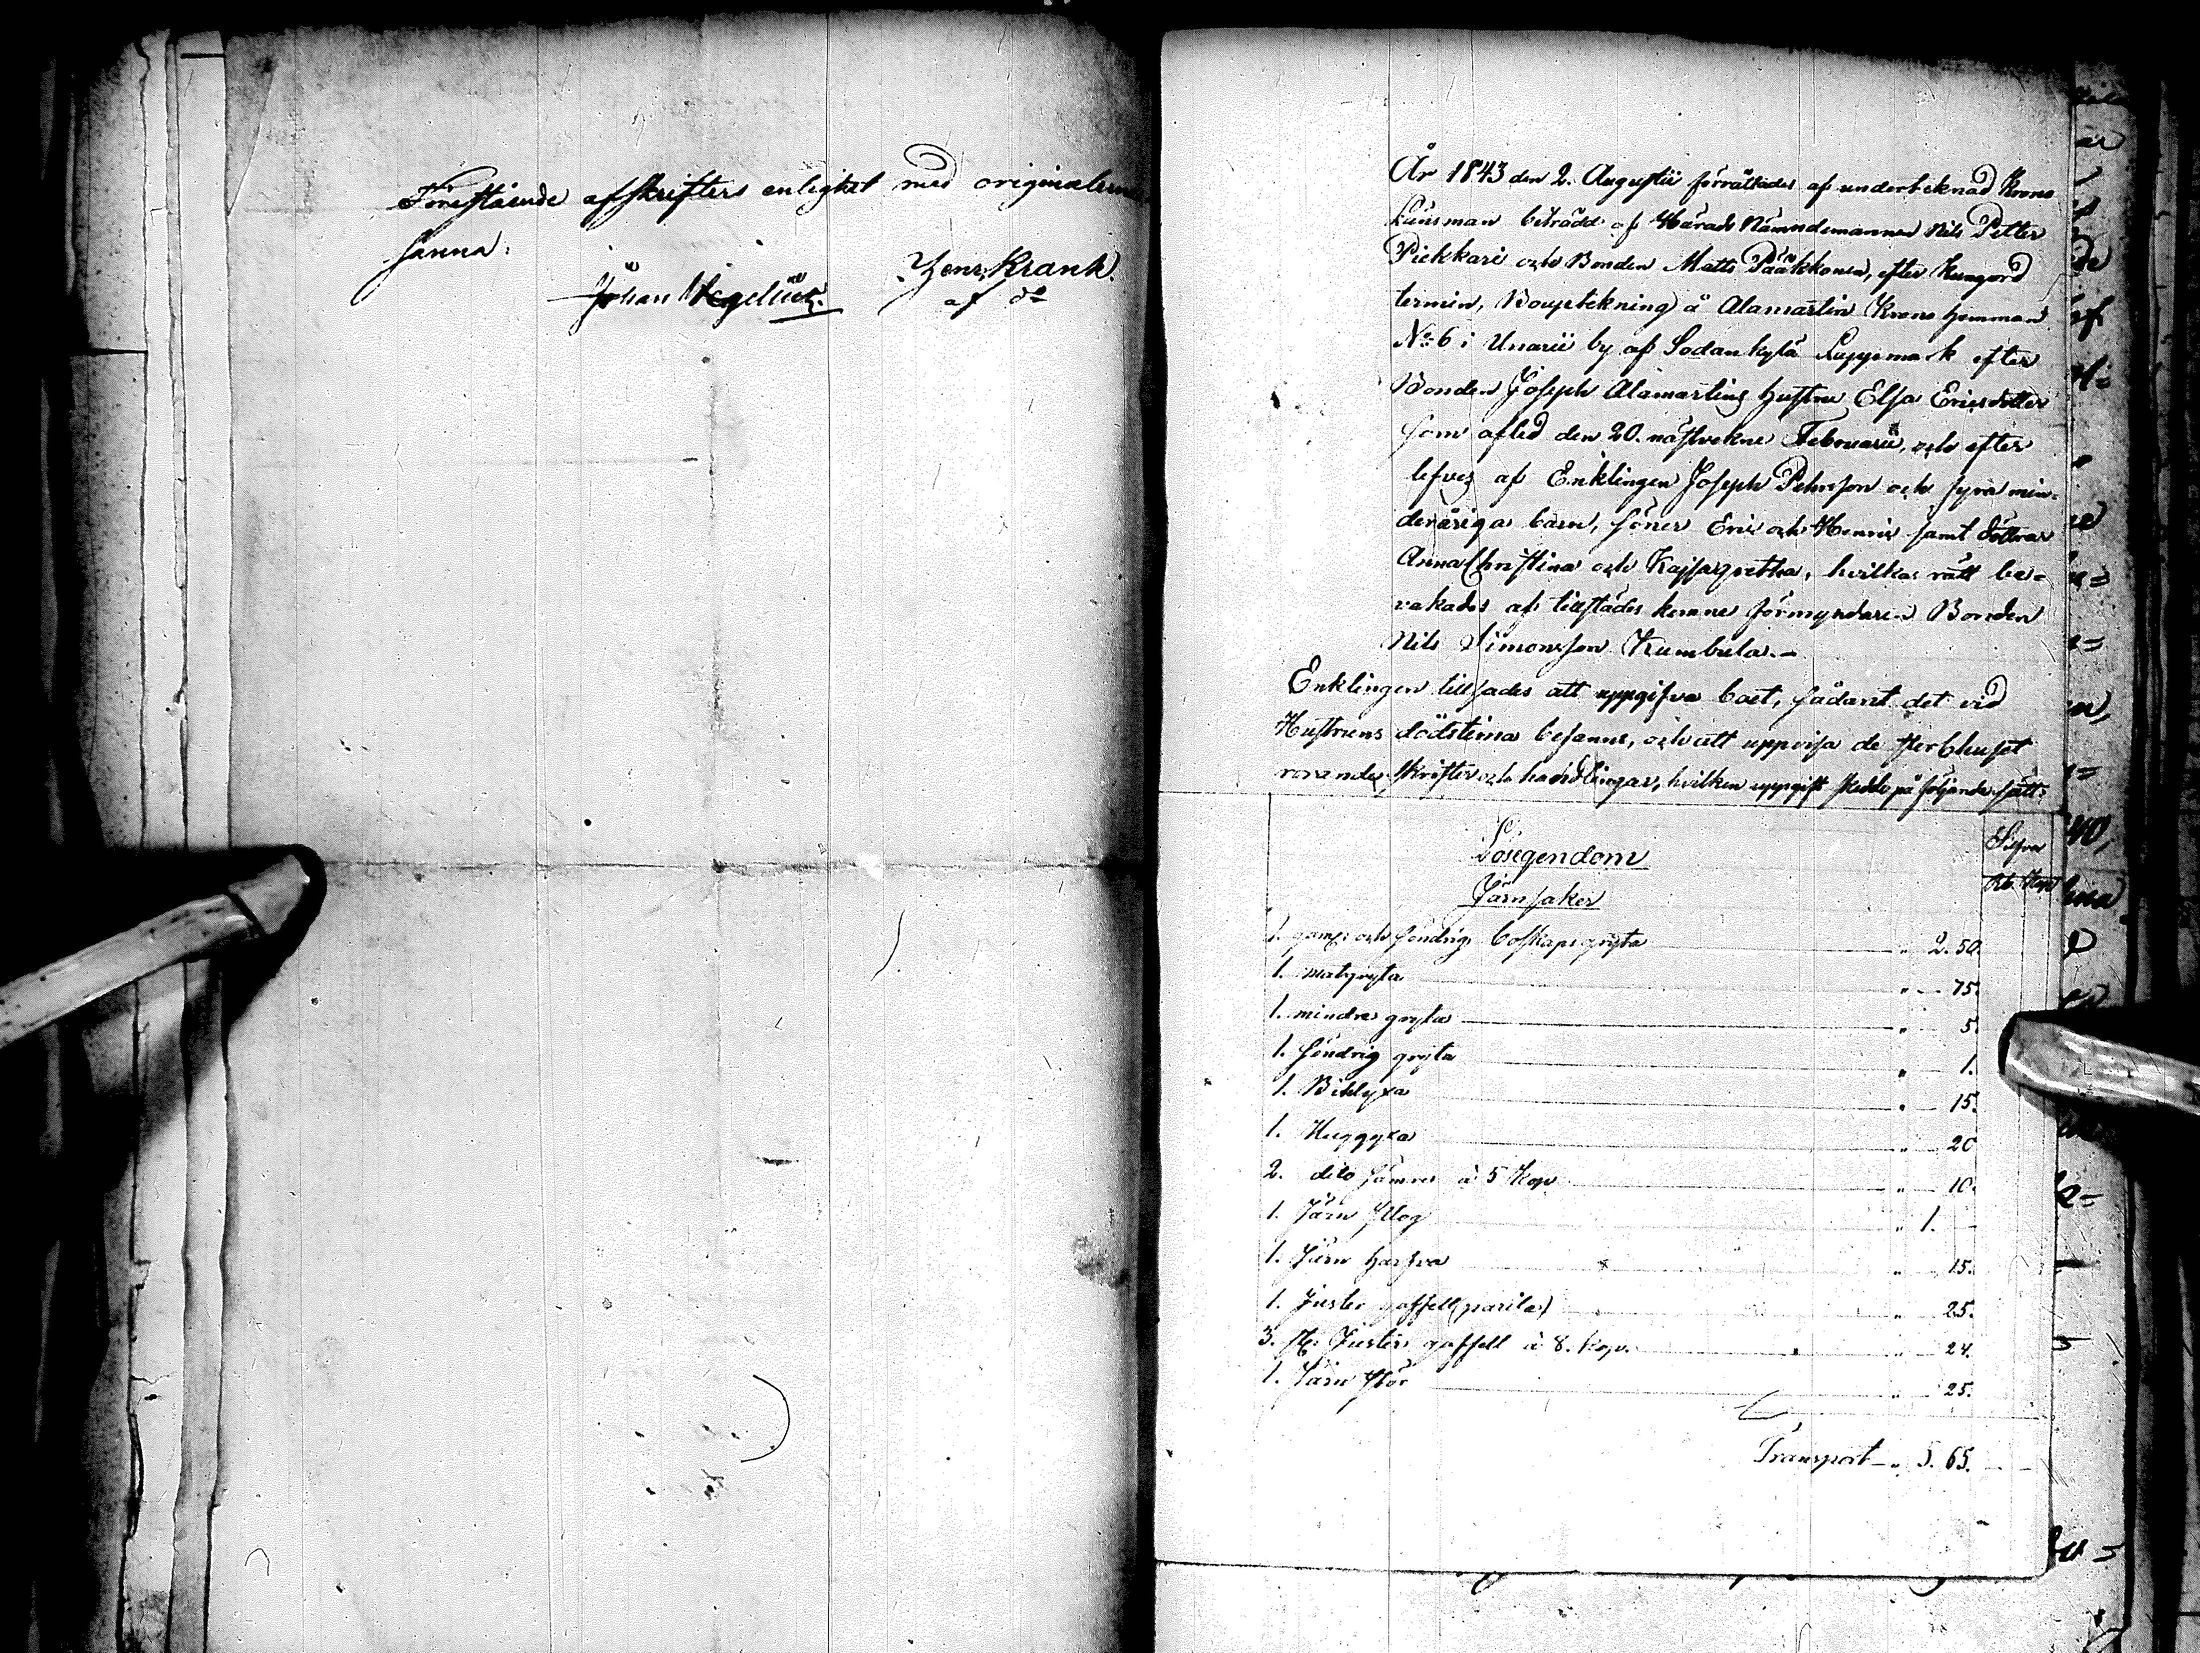 Förestående afskrifters enlighet med originalerne
sanna.
Johan Wegelius. Henr. Krank.
af do
År 1843 den 2. Augustii förrättades af undertecknad Krono
Länsman biträdd af Härads Nämndemannen Nils Petter
Piekkari och Bonden Matts Pääkkonen, efter kungjord
termin, Boupptekning å Alamartin Krono hemman
No 6 i Unarii by af Sodankylä Lappmark efter
Bonden Joseph Alamartins hustru Elsa Ericsdotter
som afled den 20. nästvekne Februarii, och efter
lefves af Enklingen Joseph Pehrsson och fyra min-
deråriga barn, söner Eric och Henric samt döttrar
Anna Christina och Kajsa Gretha, hvilkas rätt be-
vakades af tillstädes komne förmyndaren Bonden
Nils Simonsson Kumbula.-
Enklingen tillsades att uppgifva boet, sådant det vid
Hustruns dödstima befanns, och att uppvisa de sterbhuset
rörande skrifter och handlingar, hvilken uppgift skedde på följande sätt:
Lösegendom Silfver
Järnsaker Rb. Kop
1. gam: och söndrig boskapsgryta " 2. 50.
1. matgryta " 75.
1. mindre gryta " 5.
1. söndrig gryta " 1.
1. Bihlyxa " 15.
1. Huggyxa " 20
2. dito sämre à 5 Kop " 10.
1. Järn plog " 1. -
1. Järn harfva " 15.
1. Juster gaffell (parila) " 25.
3. st. Juster gaffell à 8. kop. " 24.
1. Järn stör " 25.
Transport " 5. 65.